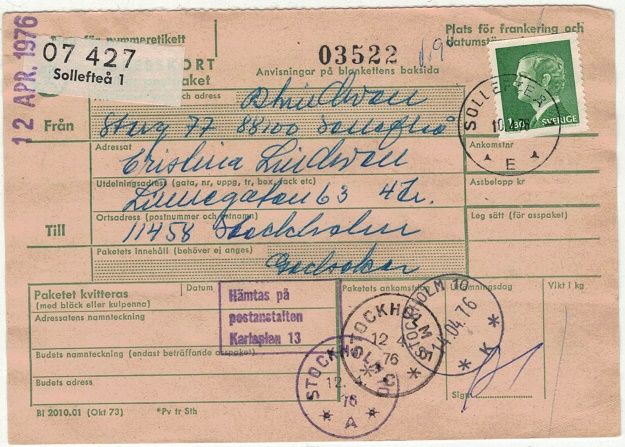 12 APR. 1976
för nummeretikett
Plats för frankering och
07 427
Sollefteå 1
03522
Anvisningar på blankettens baksida
1.30 SVERIGE
SOLLEFTEÅ
E
och adress
Från
Storg 77 88100 Sollefteå
Adressat
Cristina Lindwall
Ankomstnr
Utdelningsadress (gata, nr, uppg, tr, box, fack etc)
Linnégatan 63 4 tr.
Astbelopp kr
Ortsadress (postnummer och ortnamn)
Leg sätt (för asspaket)
Till
11458 Stockholm
Paketets innehåll (behöver ej anges)
Godsaker
Paketet kvitteras
(med bläck eller kulpenna)
Datum
Hämtas på
postanstalten
Karlaplan 13
Paketets ankomst
Vikt i kg
Adressatens namnteckning
STOCKHOLM 10
14.04.76
K
STOCKHOLM
12 4
76
Budets namnteckning (endast beträffande asspaket)
Budets adress
STOCKHOLM
12.
76
A
Sign
BI 2010.01 (Okt 73)
*Pv tr Sth